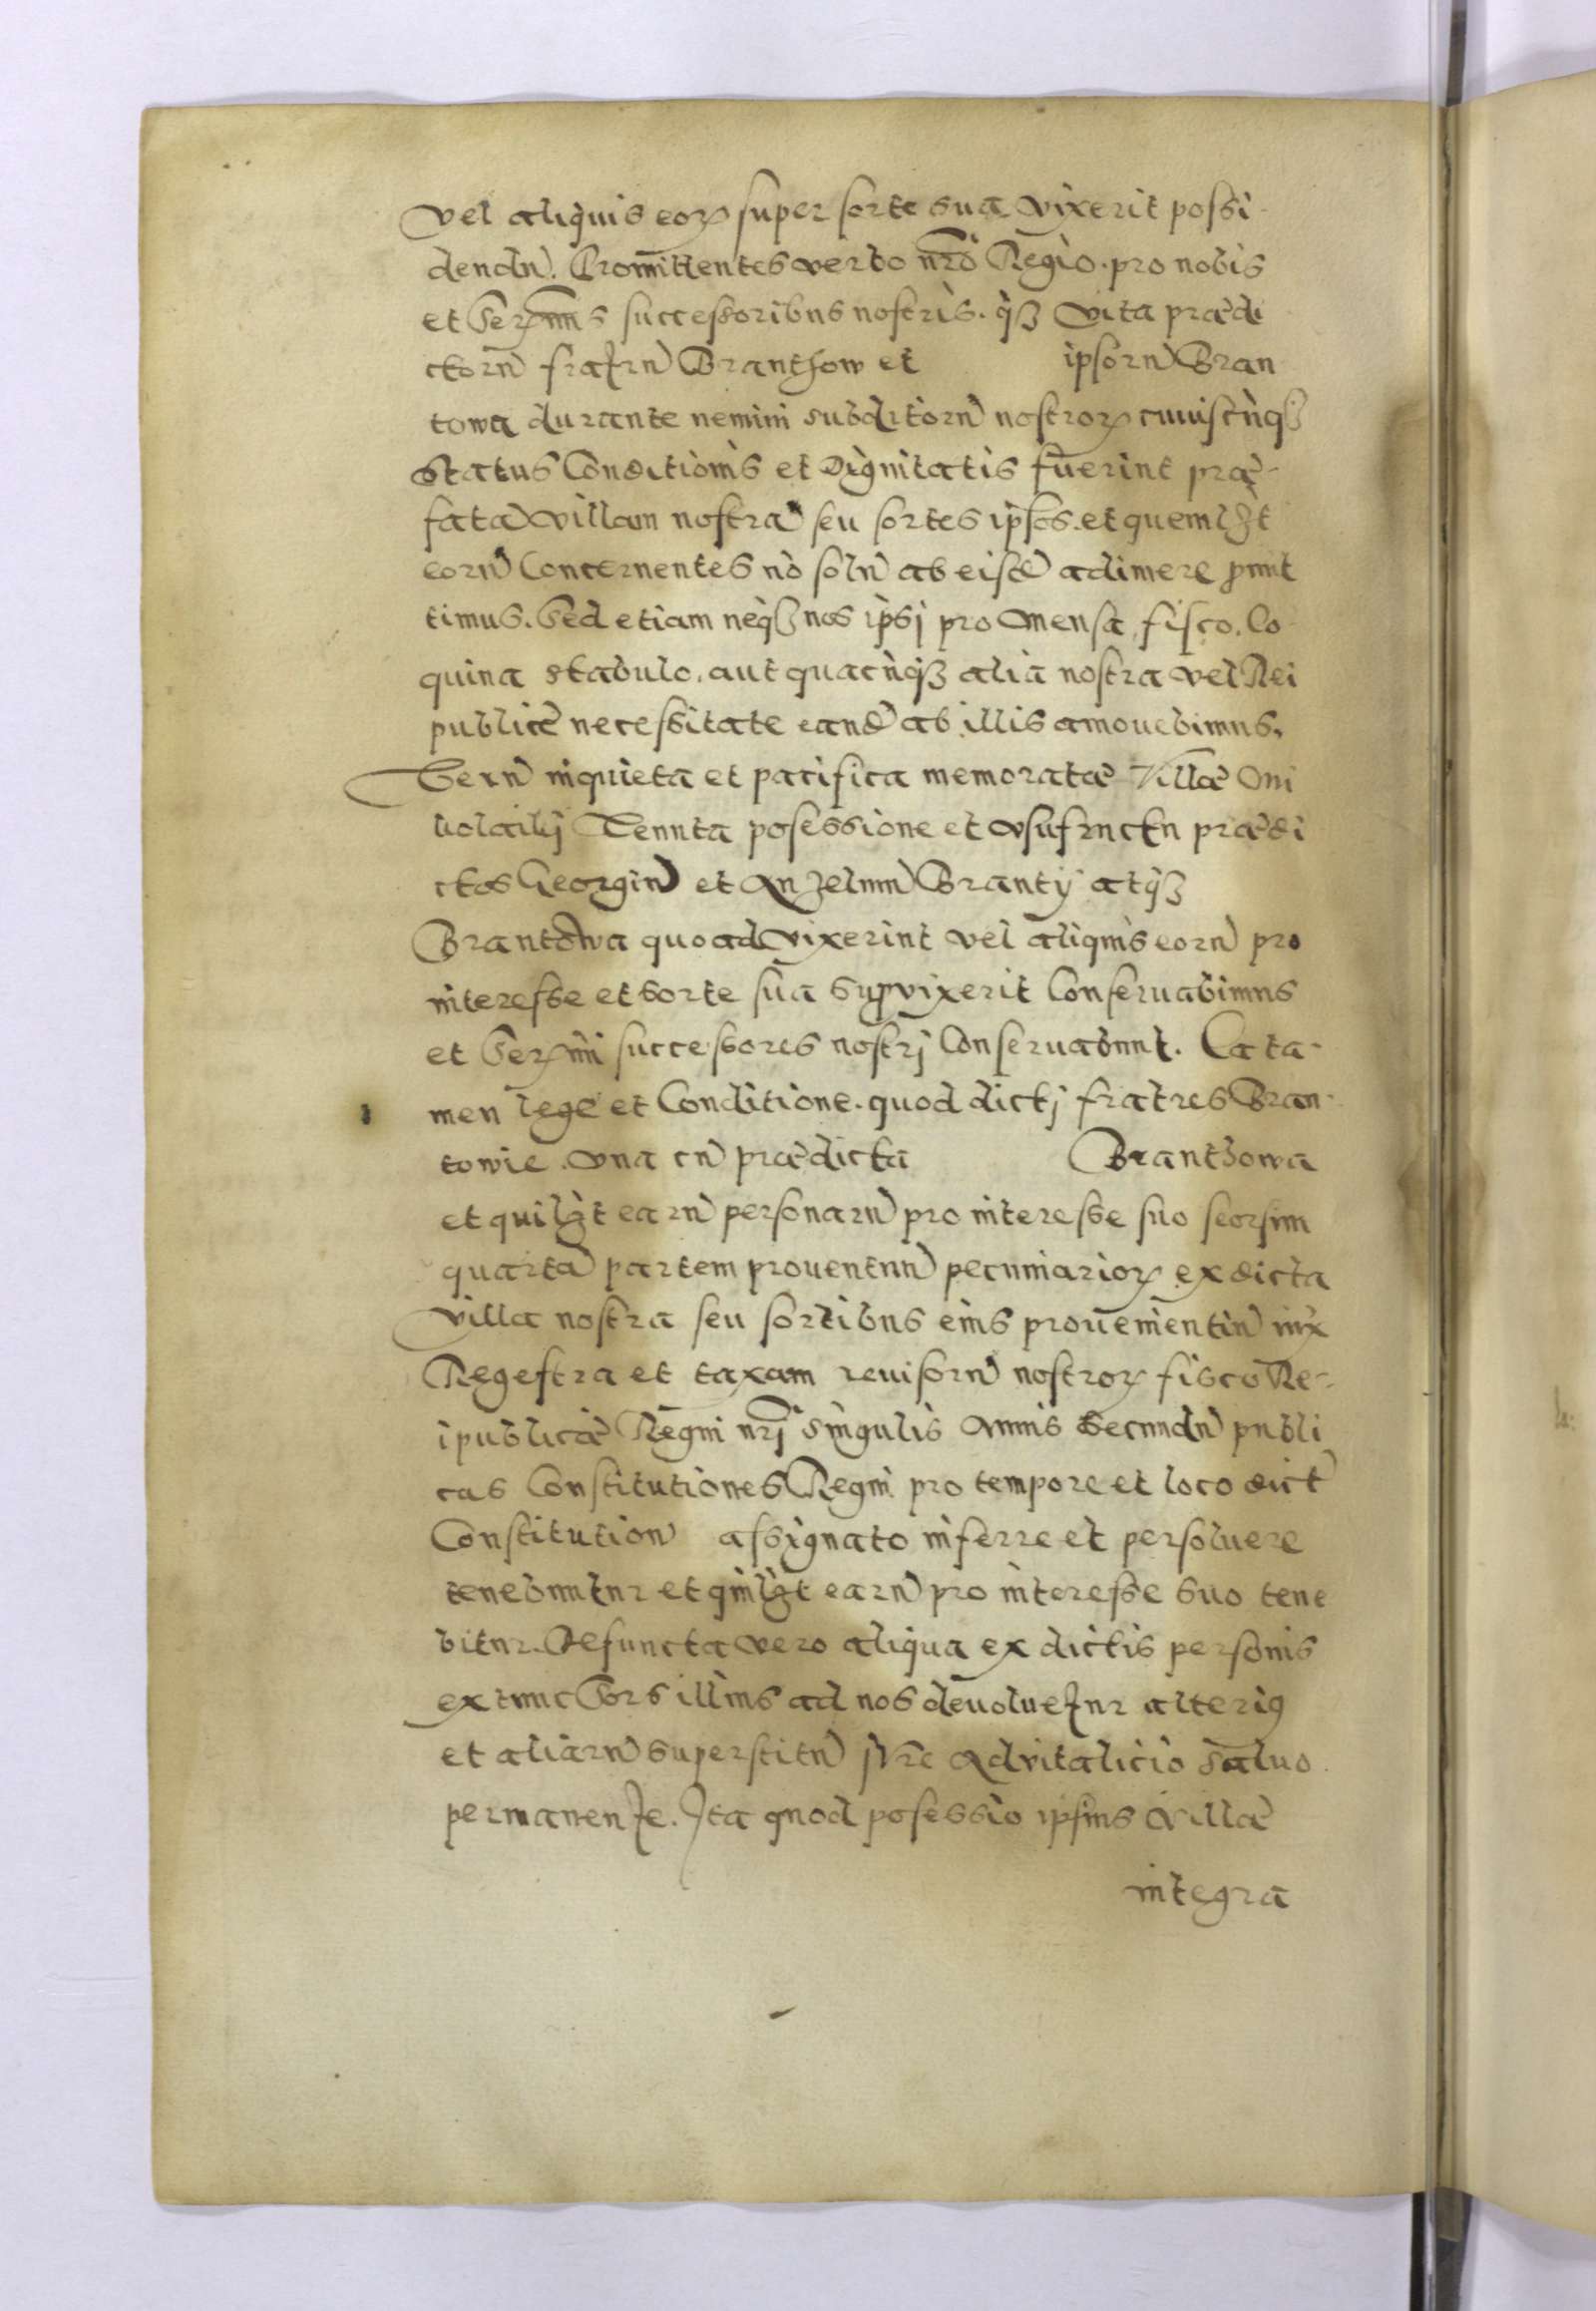 vel aliquis eorꝝ super sorte sua vixerit possi-
dendū. Promittentes verbo nr̄o Regio. pro nobis
et Serꝫmis successoribus nostris. qȝ vita prædi
ctorū fratrū Branthow et ipsorū Bran
towa durante nemini subditorū nostrorꝝ cuiuscūqȝ
status Conditionis et Dignitatis fuerint præ-
fatā villam nostrā seu sortes ipsos. et quemlꝫt
eorū Concernentes nō solū ab eisdē adimere pmit
timus. Sed etiam neqȝ nos ipsi pro Mensa, fisco, Co
quina stabulo, aut quacūqȝ alia nostra vel Rei
publicæ necessitate eandē ab illis amouebimus,
Verū in quieta et pacifica memoratæ Villæ
Tenuta posessione et vsufructu prædi
ctos Georgiū et Anzelmū Branty atqȝ
Brantowa quoad vixerint vel aliquis eorū pro
interesse et sorte sua supvixerit Conseruabimus
et Serꝫmi successores nostrj Conseruabunt. Ea ta-
men lege et Conditione. quod dictj fratres Bran-
towie vna cū prædicta Branthowa
et quilꝫt earū personarū pro interesse suo seorsim
quartā partem prouentuū pecuniariorꝝ ex dicta
villa nostra seu sortibus eius prouenientiū iux
Regestra et taxam reuisorū nostrorꝝ fisco Re-
ipublicæ Regni nr̄j singulis Annis secundū publi
cas Constitutiones Regni pro tempore et loco dict
Constitution assignato inferre et persoluere
tenebuntur et quilꝫt earū pro interesse suo tene
bitur. Defuncta vero aliqua ex dictis personis
extunc Sors illius ad nos deuoluetur alterius
et aliarū superstitū jure Aduitalicio saluo
permanente. Ita quod posessio ipsius Villæ
integra